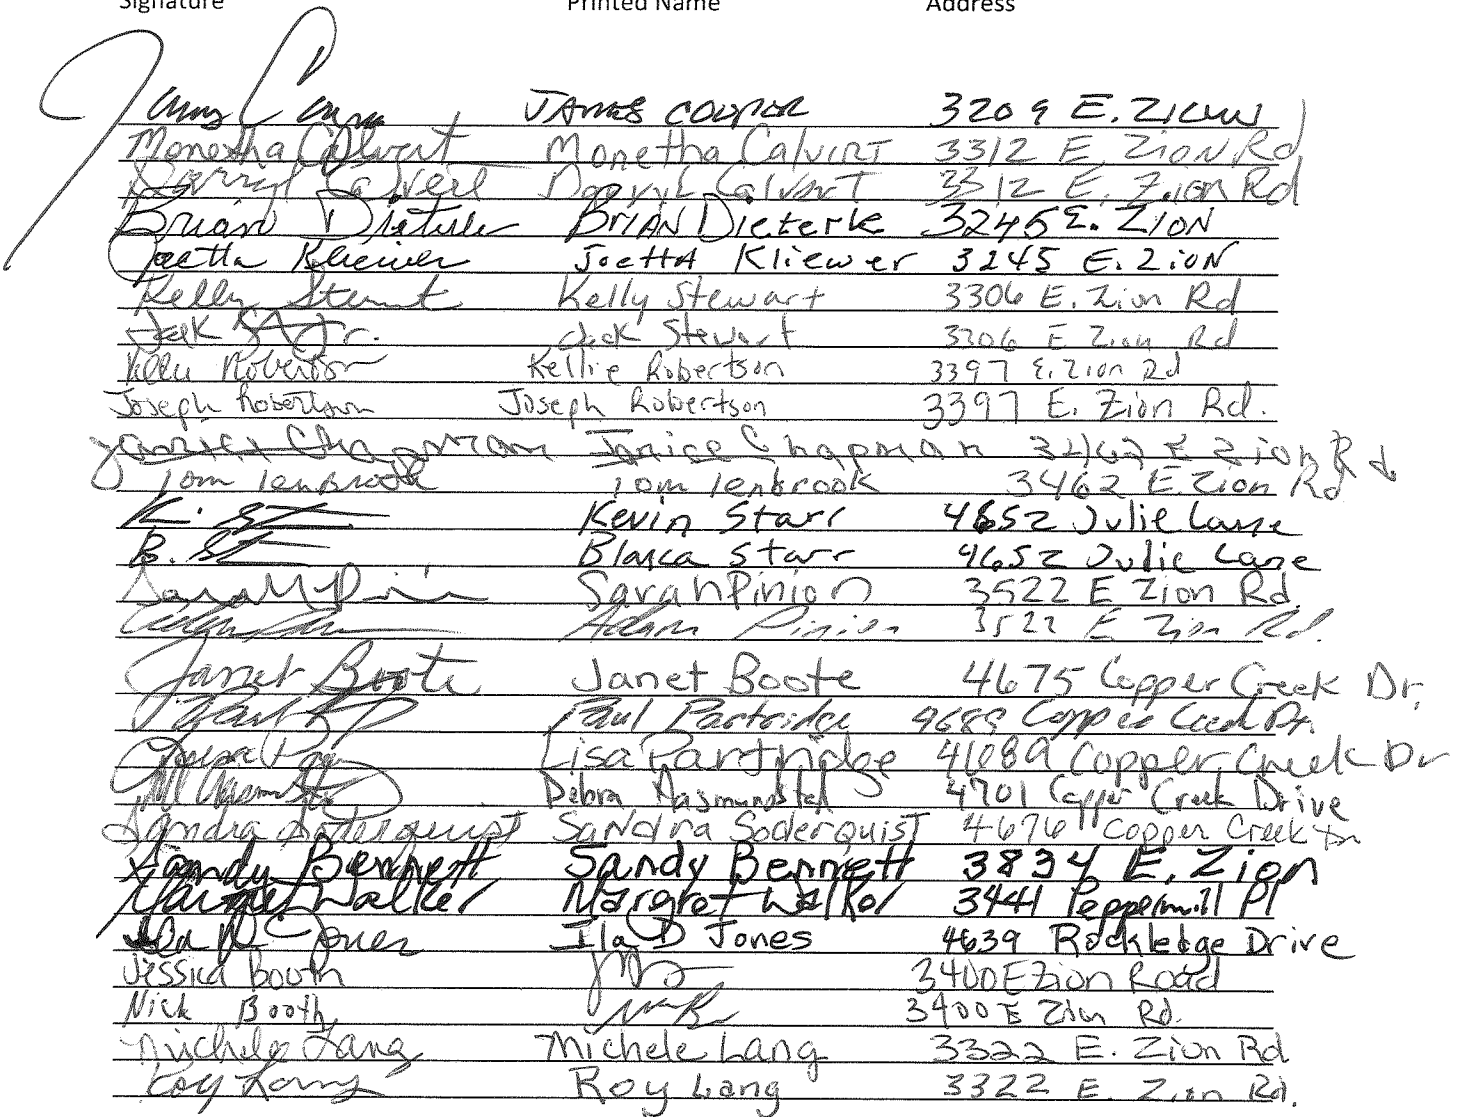 Signature Printed Name Address
James Cooper JAMES COOPER 3209 E. ZION
Monetha Calvert Monetha Calvert 3312 E. Zion Rd
Darryl Calvert Darryl Calvert 3312 E. Zion Rd
Brian Dieterle BRIAN Dieterle 3245 E. ZION
Joetta Kliewer JoettA Kliewer 3245 E. ZION
Kelly Stewart Kelly Stewart 3306 E. Zion Rd
Jack Jr. Jack Stewart 3306 E Zion Rd
Kellie Robertson Kellie Robertson 3397 E. Zion Rd
Joseph Robertson Joseph Robertson 3397 E. Zion Rd.
Janice Chapman Janice Chapman E Zion Rd
Tom Tenbrook Tom Tenbrook 3462 E. Zion Rd
K. Kevin Starr 4652 Julie Lane
B. Starr 4652 Julie Lane
Sarah Pinion Sarah Pinion 3522 E Zion Rd.
Adam Pinion 3522 E Zion Rd.
Janet Boote Janet Boote 4675 Copper Creek Dr.
Paul Paul Partridge 4689 Copper Creek Dr.
Lisa Lisa Partridge 4689 Copper Creek Dr
Debra 4701 Copper Creek Drive
Sandra Soderquist Sandra Soderquist 4676 Copper Creek Dr
Sandy Bennett Sandy Bennett 3834 E. Zion
Margret Walker Margret Walker 3441 Peppermill Pl
Ila D Jones Ila D Jones 4639 Rockledge Drive
Jessica Booth 3400 E Zion Road
Nick Booth 3400 E Zion Rd.
Michele Lang Michele Lang 3322 E. Zion Rd
Roy Lang Roy Lang 3322 E. Zion Rd.